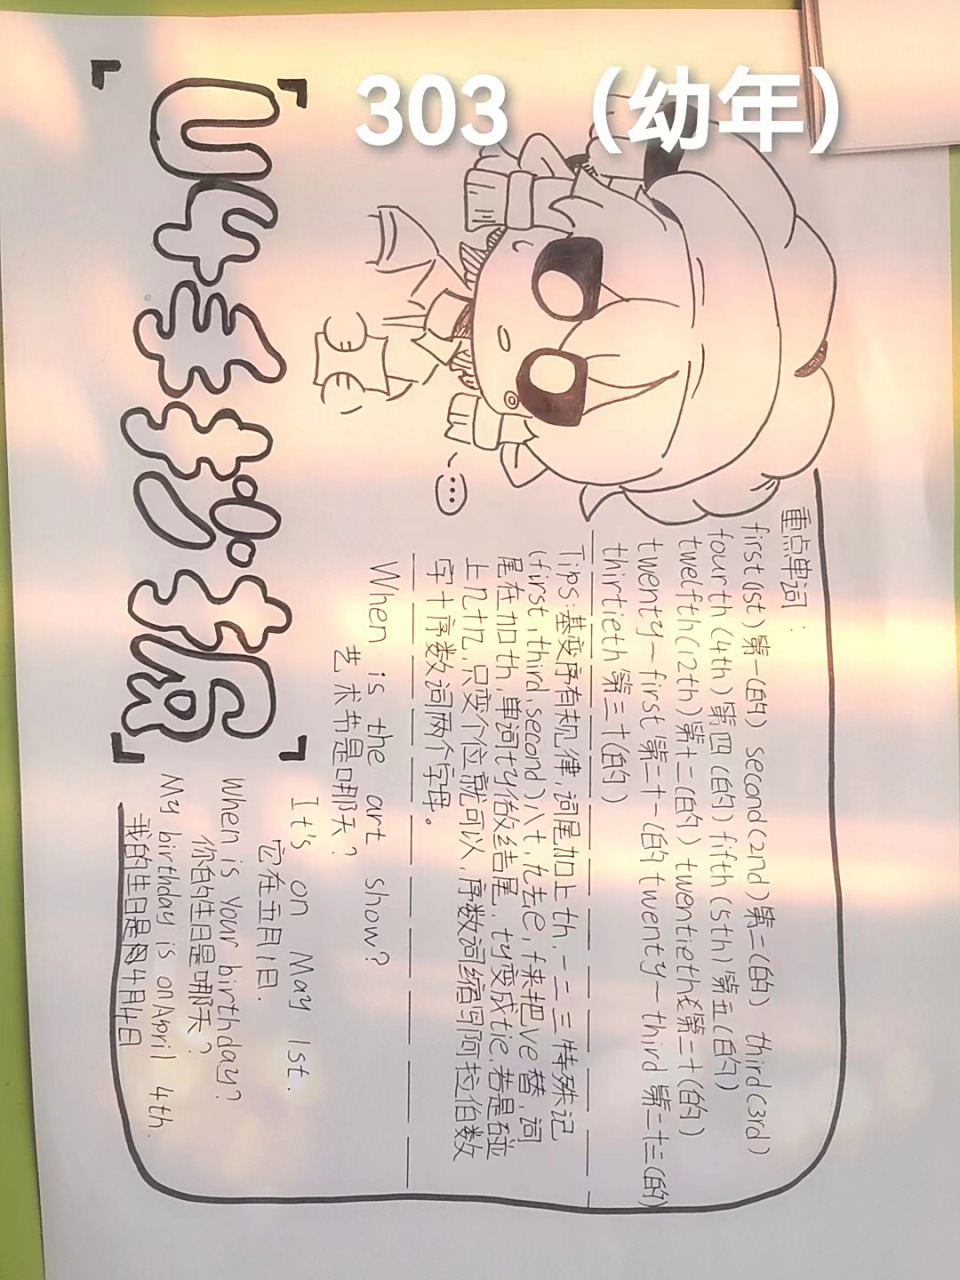 303 （幼年）
U4手抄报
重点单词：
first(1st)第一(的) second(2nd)第二(的) third(3rd)
fourth(4th)第四(的) fifth(5th)第五(的)
twelfth(12th)第十二(的) twentieth第二十(的)
twenty-first第二十一(的) twenty-third第二十三(的)
thirtieth第三十(的)
Tips:基变序有规律,词尾加上th.一二三特殊记
(first,third,second)八t,九去e,f来把ve替,词
尾在加th,单词ty做结尾,ty变成tie.若是碰
上几十几,只变个位就可以,序数词缩写阿拉伯数
字+序数词两个字母。
When is the art show?
艺术节是哪天？
It's on May 1st.
它在五月1日.
When is your birthday?
你的生日是哪天？
My birthday is on April 4th.
我的生日是4月4日